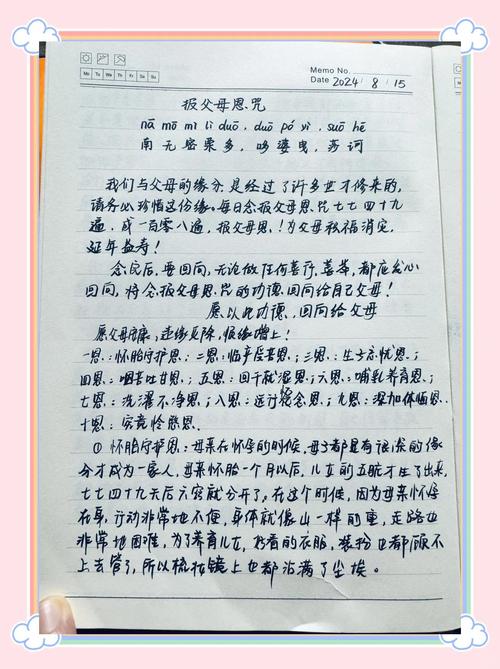 Memo No.
Mo Tu We Th Fr Sa Su
Date 2024 / 8 / 15
报父母恩咒
nā mō mì lì duō, duō pó yì, suō hē
南无密栗多，哆婆曳，莎诃
我们与父母的缘分是经过了许多世才修来的，
请务必珍惜这份缘。每日念报父母恩咒七七四十九
遍，或一百零八遍，报父母恩！为父母祈福消灾，
延年益寿！
念完后，要回向，无论做任何善行、善举，都应发心
回向，将念报父母恩咒的功德，回向给自己父母！
愿以此功德，回向给父母
愿父母健康，违缘免除，顺缘增上！
一恩：怀胎守护恩；二恩：临产受苦恩；三恩：生子忘忧恩；
四恩：咽苦吐甘恩；五恩：回干就湿恩；六恩：哺乳养育恩；
七恩：洗濯不净恩；八恩：远行忆念恩；九恩：深加体恤恩；
十恩：究竟怜愍恩。
① 怀胎守护恩：母亲在怀孕的时候，母子都是有很深的缘
分才成为一家人，母亲怀胎一个月以后，儿女的五脏才生了出来，
七七四十九天后六窍就分开了。在这个时候，因为母亲怀孕
在身，行动非常地不便，身体就像山一样的重，走路也
非常地困难，为了养育儿女，好看的衣服，装扮也都顾不
上去管了，所以梳妆镜上也都沾满了尘埃。